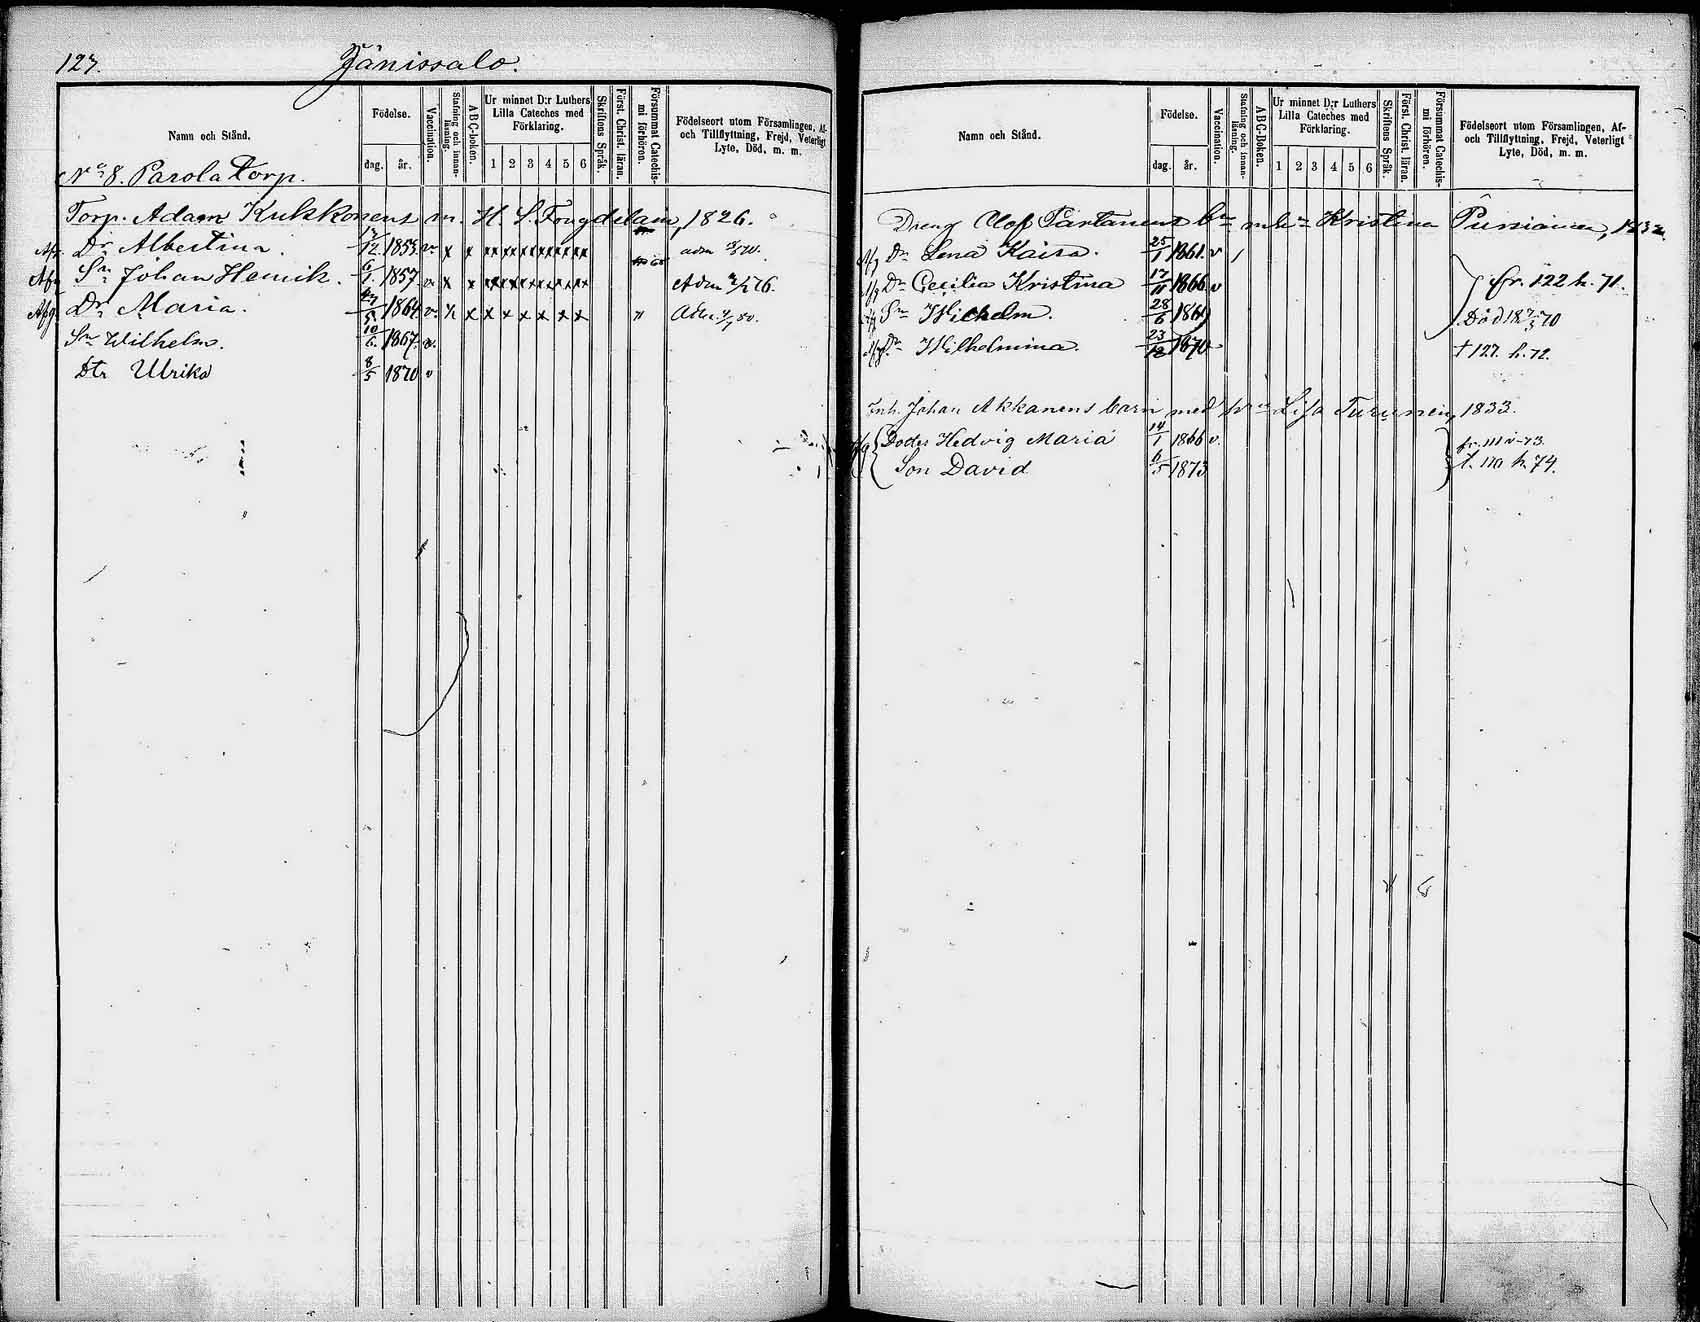 127. Jänissalo.
Namn och Stånd.
Födelse.
dag. år.
Vaccination.
Stafning och innanläsning.
ABC-boken.
Ur minnet D:r Luthers Lilla Cateches med Förklaring.
1 2 3 4 5 6
Skriftens Språk.
Först. Christ. läran.
Försummat Catechismi förhören.
Födelseort utom Församlingen, Af- och Tillflyttning, Frejd, Veterligt Lyte, Död, m. m.
No 8. Parola torp.
Torp. Adam Kukkonens m. H. L. 1826.
Dr Albertina. 12 1853 v x x xx xx xx xx xx xx adm
Afg Sn Johan Henrik. 6/1 1857 v x x Adm 76.
Afg Dr Maria. 1864 v x x x x x x x x " Adm 80.
Sn Wilhelm. 10/6 1867. v.
Dtr Ulrika 8/5 1870 v
Namn och Stånd.
Födelse.
dag. år.
Vaccination.
Stafning och innanläsning.
ABC-boken.
Ur minnet D:r Luthers Lilla Cateches med Förklaring.
1 2 3 4 5 6
Skriftens Språk.
Först. Christ. läran.
Försummat Catechismi förhören.
Födelseort utom Församlingen, Af- och Tillflyttning, Frejd, Veterligt Lyte, Död, m. m.
Dreng Olof Partanens bn Kristina
Afg Dr Lena Kaisa. 25/1 1861. v
Afg Dr Cecilia Kristina 17/11 1866 v fr. 122 h. 71.
Sn Wilhelm. 28/6 1869 Död 70
Dr Wilhelmina. 23/12 1870 127. h. 72.
Inh. Johan Akkanens barn med hu Lisa Turunen, 1833.
Afg Doter Hedvig Maria 14/1 1866 v. fr. 111 73.
Son David 6/5 1873 t. 110 h. 74.